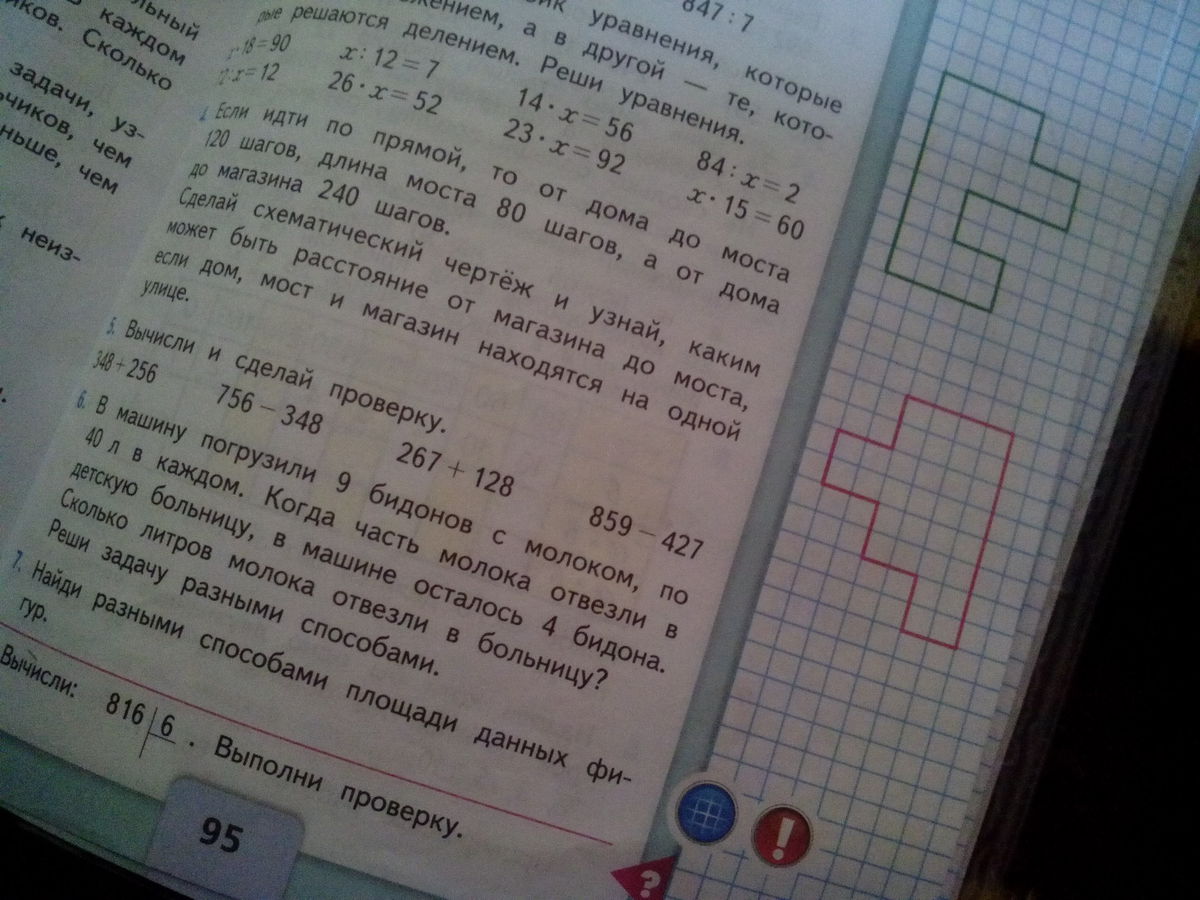 льный
каждом
иков. Сколько
задачи, уз-
ьчиков, чем
ньше, чем
неиз-
847 : 7
уравнения, которые
жением, а в другой — те, кото-
рые решаются делением. Реши уравнения.
х·18=90 x : 12 = 7 14 · x = 56 84 : x = 2
: x = 12 26 · x = 52 23 · x = 92 x · 15 = 60
Если идти по прямой, то от дома до моста
120 шагов, длина моста 80 шагов, а от дома
до магазина 240 шагов.
Сделай схематический чертёж и узнай, каким
может быть расстояние от магазина до моста,
если дом, мост и магазин находятся на одной
улице.
5. Вычисли и сделай проверку.
348 + 256 756 − 348 267 + 128 859 − 427
6. В машину погрузили 9 бидонов с молоком, по
40 л в каждом. Когда часть молока отвезли в
детскую больницу, в машине осталось 4 бидона.
Сколько литров молока отвезли в больницу?
Реши задачу разными способами.
7. Найди разными способами площади данных фи-
гур.
Вычисли: 816 | 6 . Выполни проверку.
95
!
?